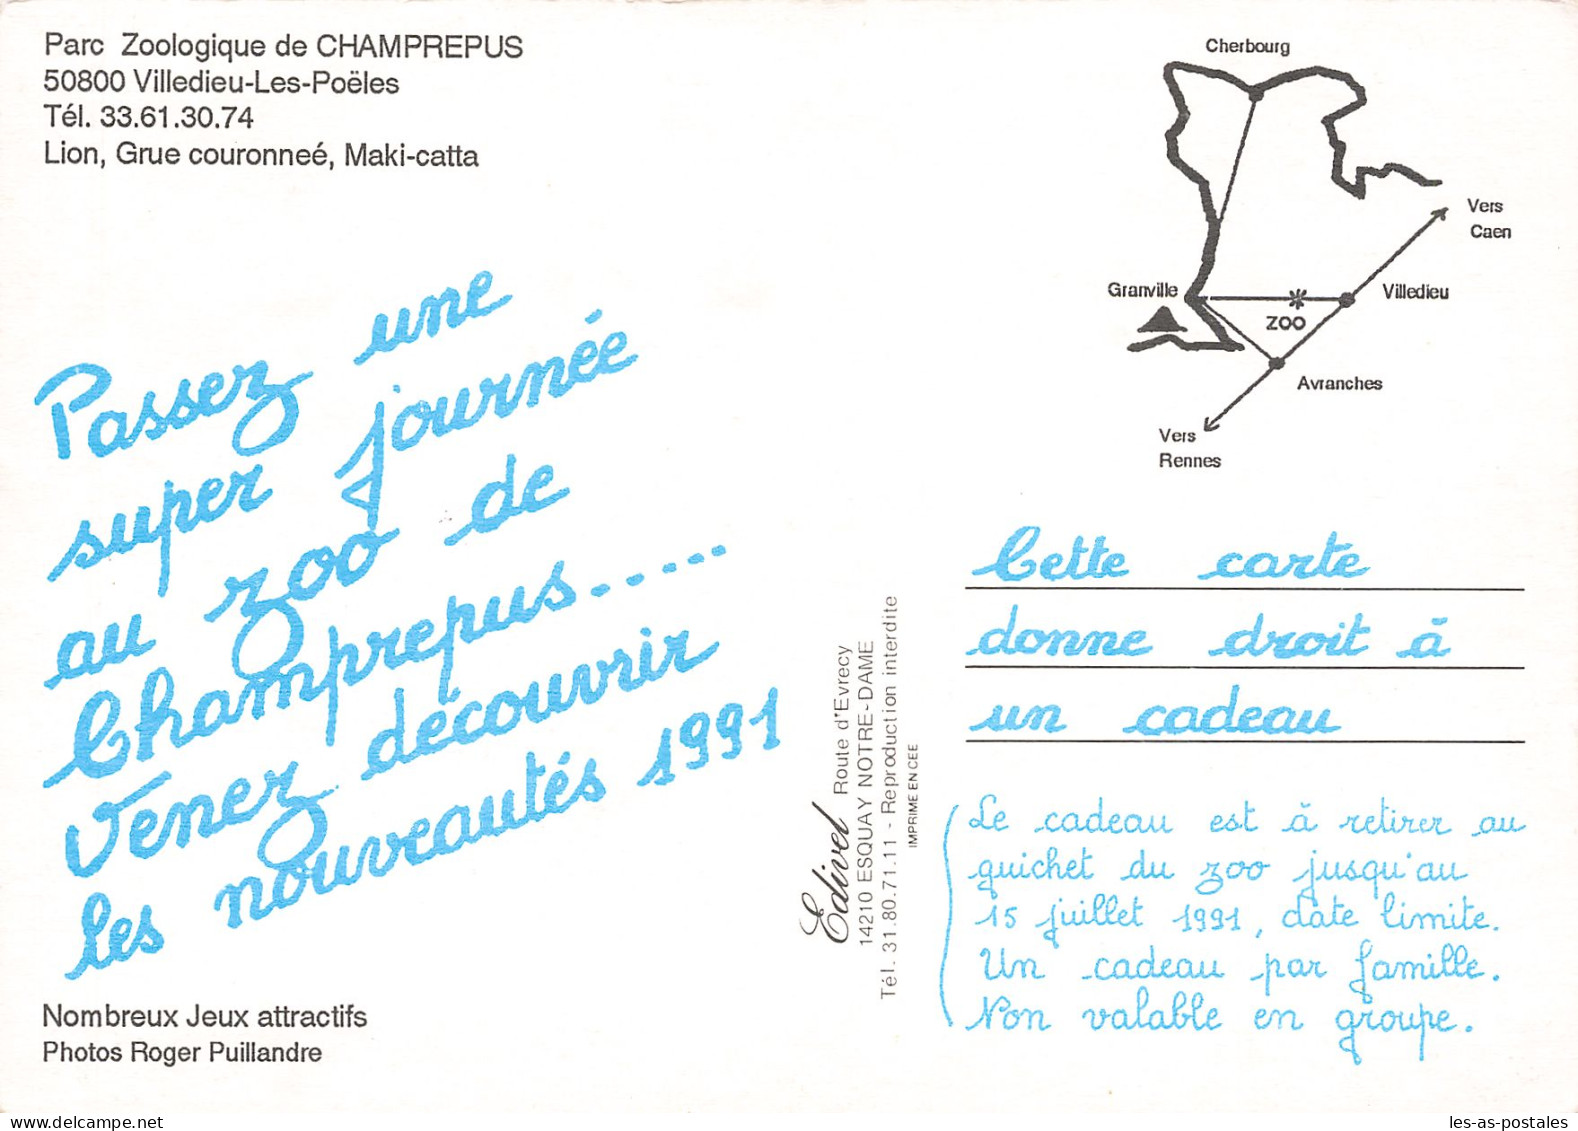 Parc Zoologique de CHAMPREPUS
50800 Villedieu-Les-Poëles
Tél. 33.61.30.74
Lion, Grue couronneé, Maki-catta
Passez une
super journée
au zoo de
Champrepus.....
Venez découvrir
les nouveautés 1991
Nombreux Jeux attractifs
Photos Roger Puillandre
Edivel Route d'Evrecy
14210 ESQUAY NOTRE-DAME
Tél. 31.80.71.11 - Reproduction interdite
IMPRIME EN CEE
Cherbourg
Vers
Caen
Granville
Villedieu
ZOO
Avranches
Vers
Rennes
Cette carte
donne droit à
un cadeau
Le cadeau est à retirer au
guichet du zoo jusqu'au
15 juillet 1991, date limite.
Un cadeau par famille.
Non valable en groupe.
les-as-postales